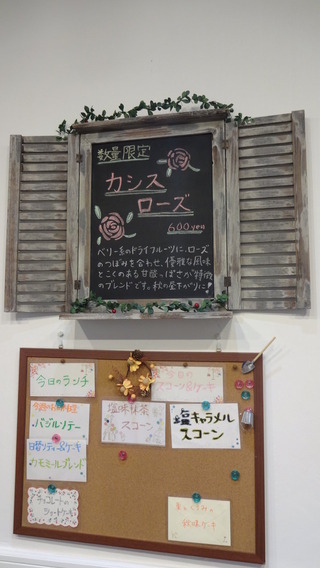 数量限定
カシス
ローズ
600yen
ベリー系のドライフルーツに、ローズ
のつぼみを合わせ、優雅な風味
とこくのある甘酸っぱさが特徴
のブレンドです。秋の昼下がりに!
今日のランチ
バジルソテー
日替ソティー&ケーキ
カモミールブレンド
チョコレートの
ショートケーキ
塩味抹茶
スコーン
今日の
スコーン&ケーキ
塩キャラメル
スコーン